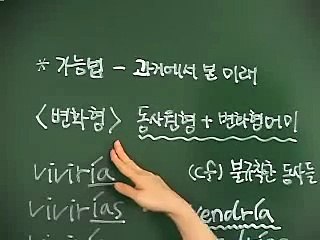 * 가능법 - 과거에서 본 미래
<변화형> 동사원형 + 변화형어미
viviría (cf) 불규칙한 동사들
vivirías vendría